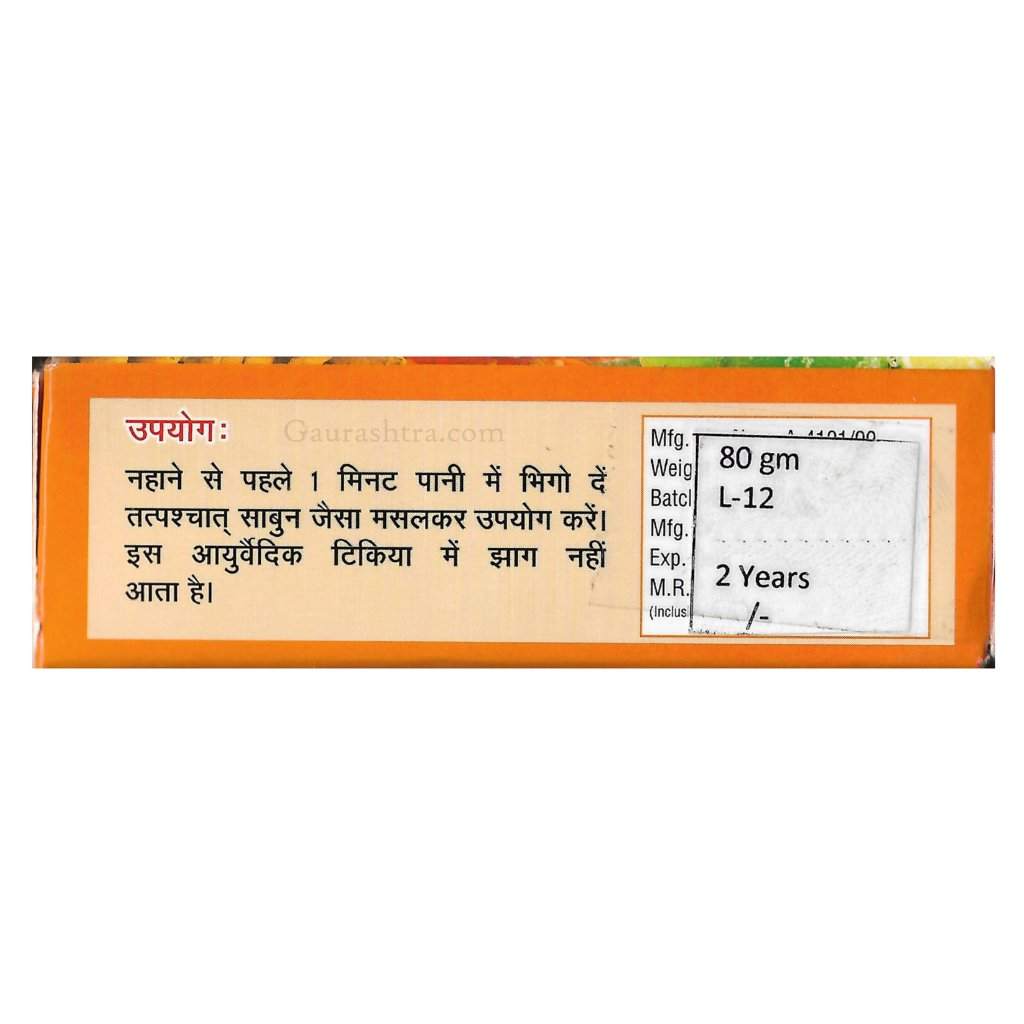 उपयोगः
Gaurashtra.com
नहाने से पहले 1 मिनट पानी में भिगो दें
तत्पश्चात् साबुन जैसा मसलकर उपयोग करें।
इस आयुर्वैदिक टिकिया में झाग नहीं
आता है।
Mfg.
Weig 80 gm
Batcl L-12
Mfg.
Exp. 2 Years
M.R. /-
(Inclus